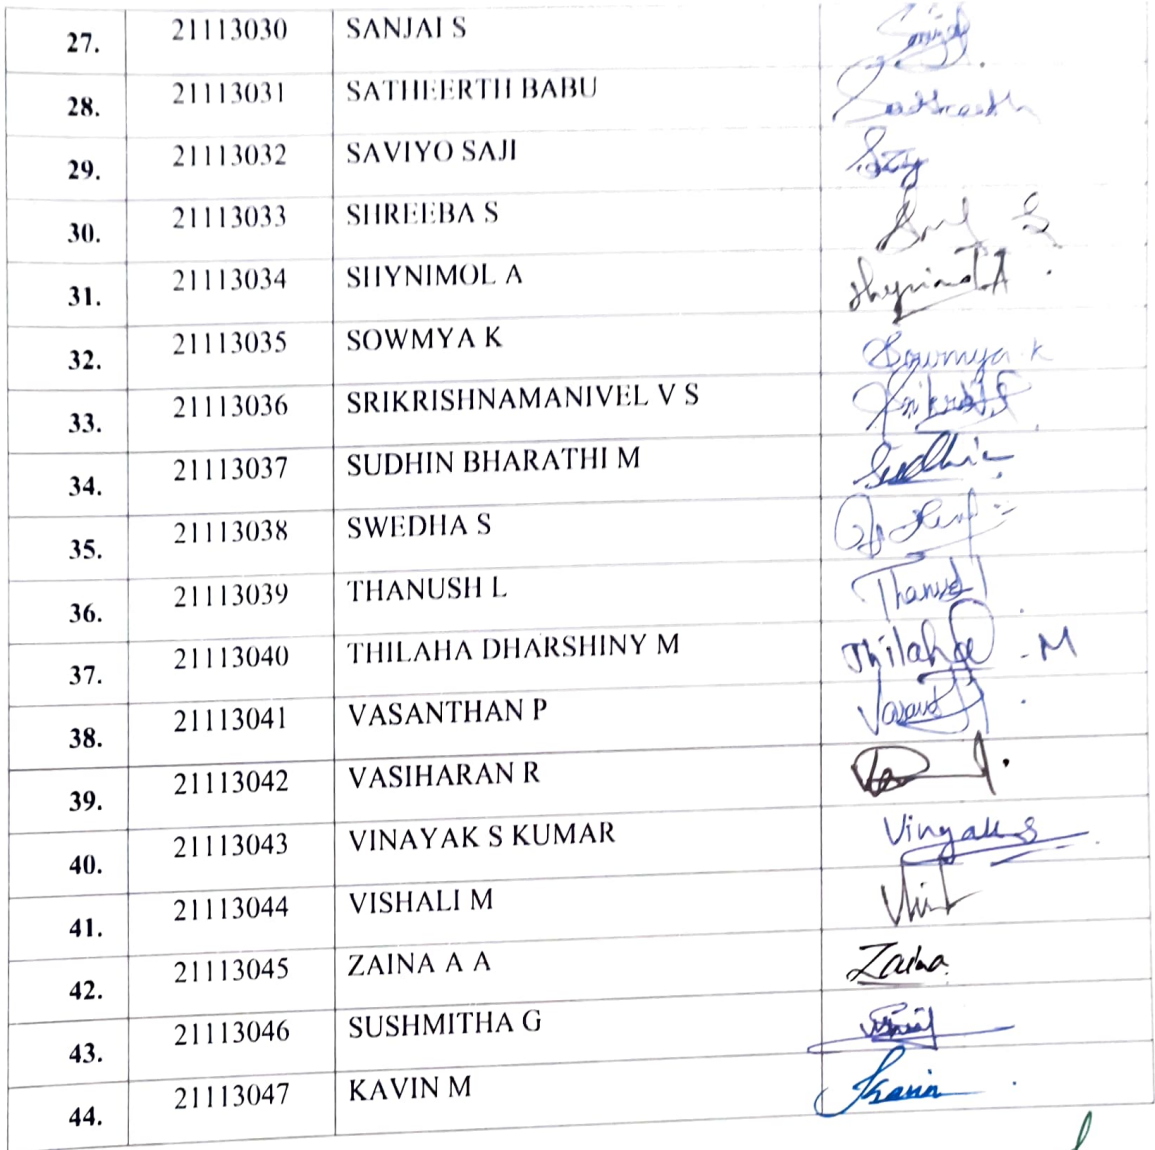 27. 21113030 SANJAI S
28. 21113031 SATHEERTH BABU Satheerth
29. 21113032 SAVIYO SAJI
30. 21113033 SHREEBA S
31. 21113034 SHYNIMOL A Shynimol A
32. 21113035 SOWMYA K Sowmya K
33. 21113036 SRIKRISHNAMANIVEL V S
34. 21113037 SUDHIN BHARATHI M Sudhin
35. 21113038 SWEDHA S
36. 21113039 THANUSH L Thanush
37. 21113040 THILAHA DHARSHINY M Thilaha - M
38. 21113041 VASANTHAN P
39. 21113042 VASIHARAN R
40. 21113043 VINAYAK S KUMAR Vinayak S
41. 21113044 VISHALI M
42. 21113045 ZAINA A A Zaina
43. 21113046 SUSHMITHA G
44. 21113047 KAVIN M Kavin